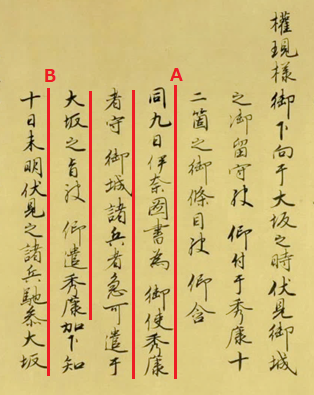 權現様御下向于大坂之時伏見御城
之御留守被 仰付于秀康十
二箇之御條目被 仰含
A
同九日伊奈圖書為 御使秀康
者守 御城諸兵者急可遣于
大坂之旨被 仰遣秀康加下知
B
十日未明伏見之諸兵馳参大坂